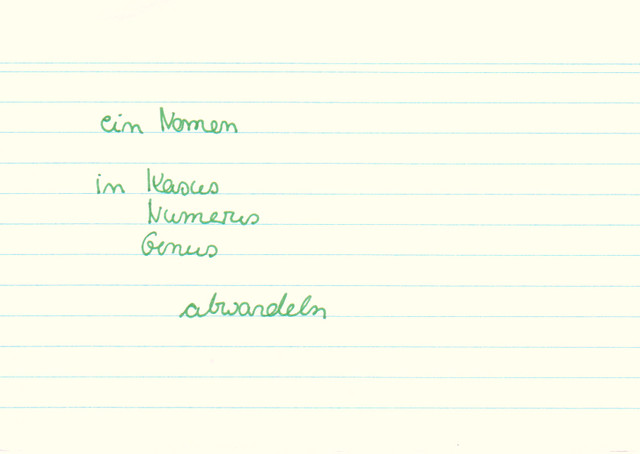 ein Nomen
in Kasus
Numerus
Genus
abwandeln